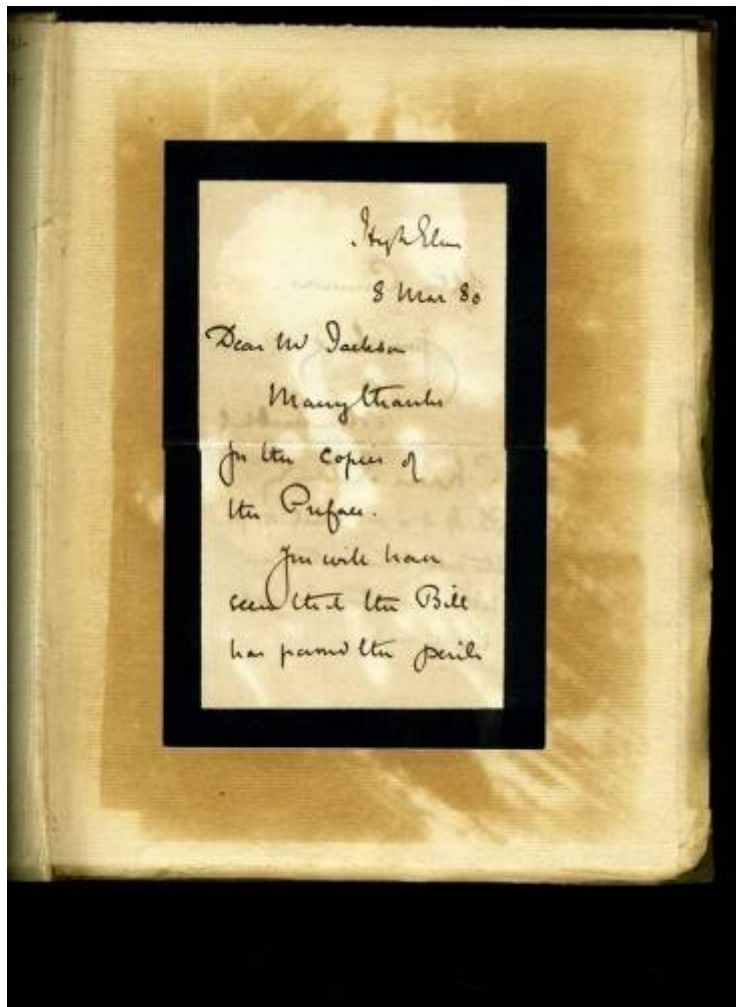 High Elms
8 Mar 80
Dear Mr Jackson
Many thanks
for the copies of
the Preface.
You will have
seen that the Bill
has passed the perils